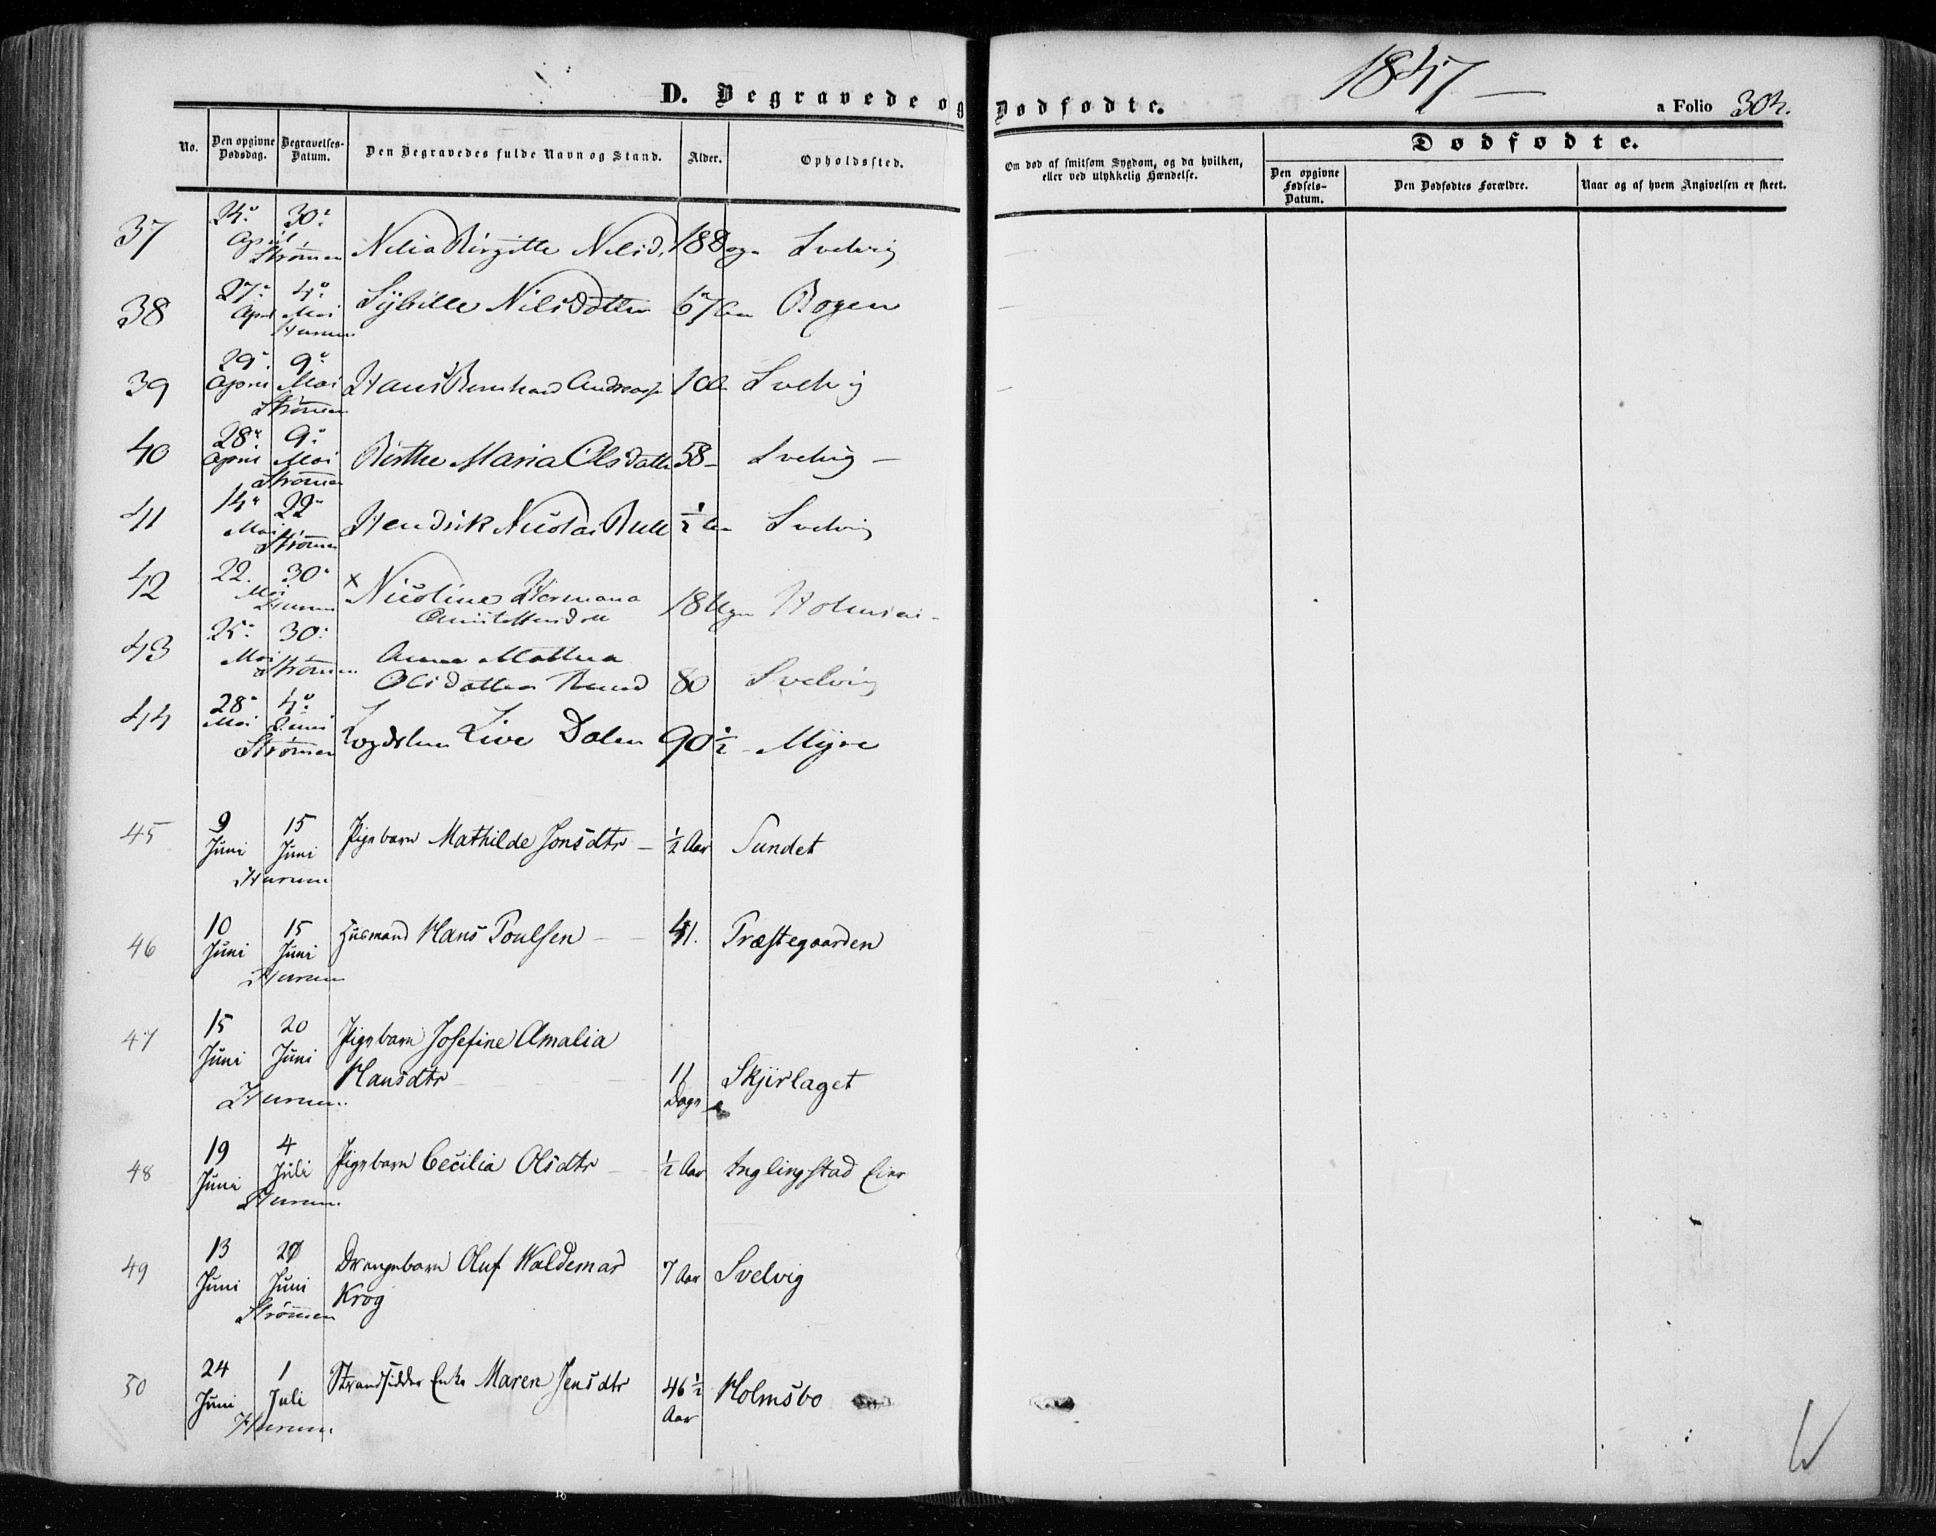 1847 —
D. Begravede og Dødfødte.
a Folio 302.
No.
Den opgivne Dødsdag.
Begravelses-Datum.
Den Begravedes fulde Navn og Stand.
Alder.
Opholdssted.
Om død af smitsom Sygdom, og da hvilken, eller ved ulykkelig Hændelse.
Dødfødte.
Den opgivne Fødsels-Datum.
Den Dødfødtes Forældre.
Naar og af hvem Angivelsen er skeet.
37 24 April 30 Strømmen Nilia Birgitte Nilsd. 18 Svelvig
38 27 April 4 Mai Hurum Sybille Nilsdatter 67 Aar Bogen
39 29 April 9 Mai Strømmen Hans Bernhard Andreas 10 Svelvig
40 28 April 9 Mai Strømmen Birthe Maria Olsdatter 58 — Svelvig —
41 14 Mai 22 Strømmen Hendrik Nicolai Bull ½ Aar Svelvig
42 22. Mai 30 Hurum × Nicoline Hermana
18 Uger
43 25 Mai 30 Strømmen Anna Mathea
Olsdatter 80 Svelvig
44 28 Mai 4 Juni Strømmen Live Dalen 90 ½ — Myre
45 9 Juni 15 Juni Hurum Pigebarn Mathilde Jonsdtr — ½ Aar Sundet
46 10 Juni 15 Juni Hurum Husmand Hans Poulsen — 41. Præstegaarden
47 15 Juni 20 Juni Hurum Pigebarn Josefine Amalia
Hansdtr 11 Dage Skjirlaget
48 19 Juni 4 Juli Hurum Pigebarn Cecilia Olsdtr — ½ Aar Inglingstad Eier
49 13 Juni 20 Juni Strømmen Drengebarn Oluf Waldemar
Krog 7 Aar Svelvig
50 24 Juni 1 Juli Hurum Strandsidder Enke Maren Jensdtr 46 ½ Aar Holmsbo